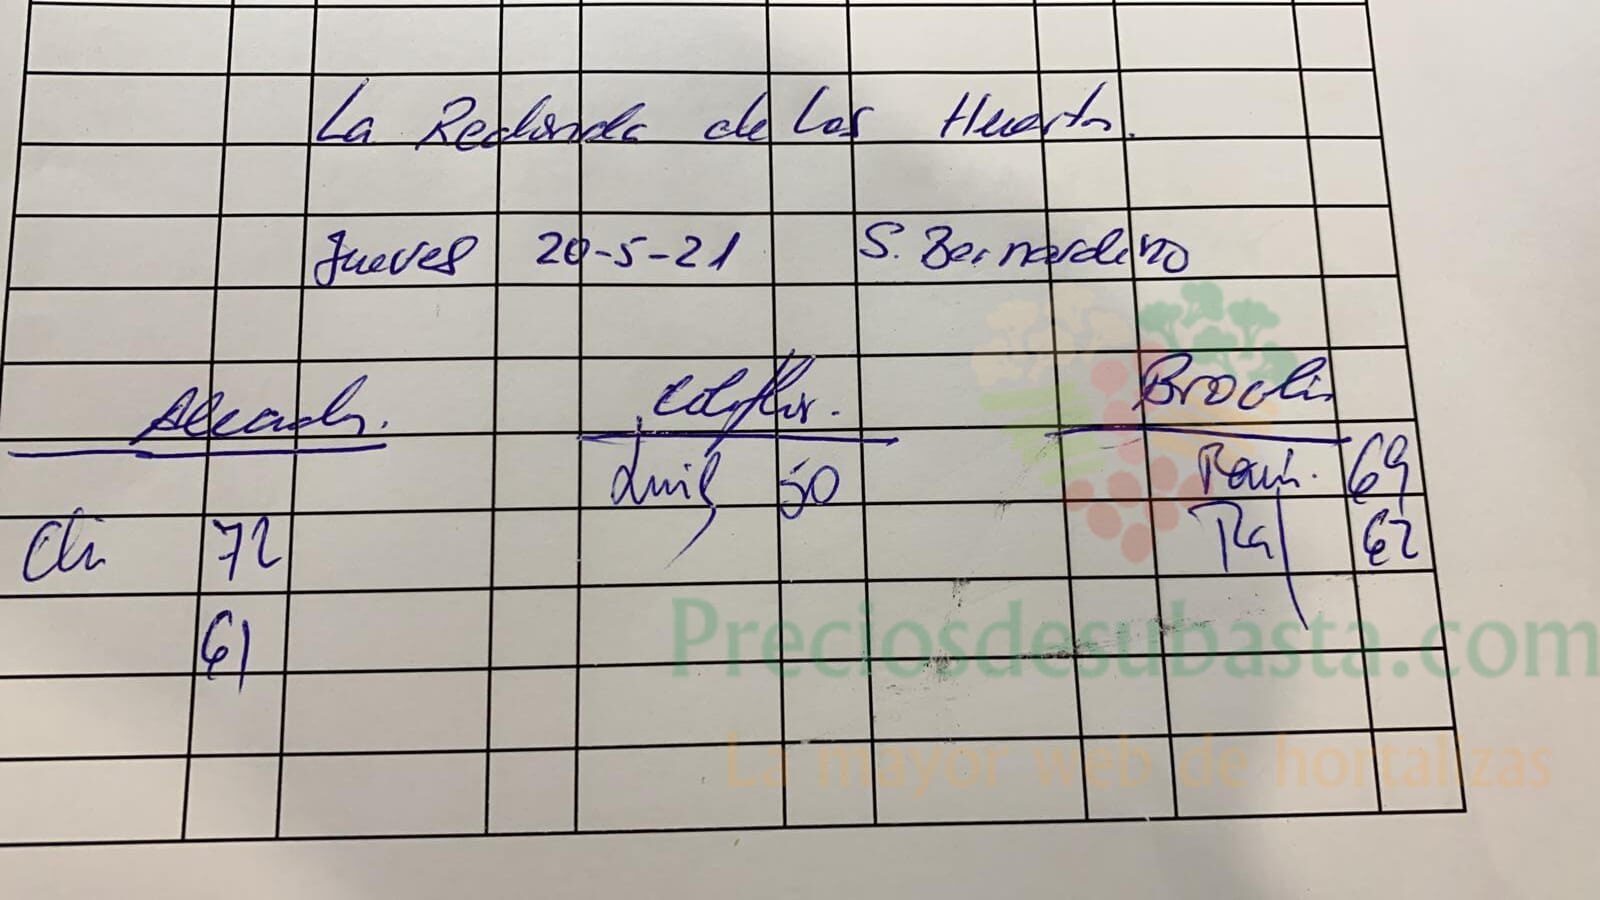 La Redonda de Los Huertos.
Jueves 20-5-21 S. Bernardino
Alcachf. Coliflor. Brocoli
Luis 50 Ram. 69
Chi 72 Raf 62
61
Preciosdesubasta.com
La mayor web de hortalizas